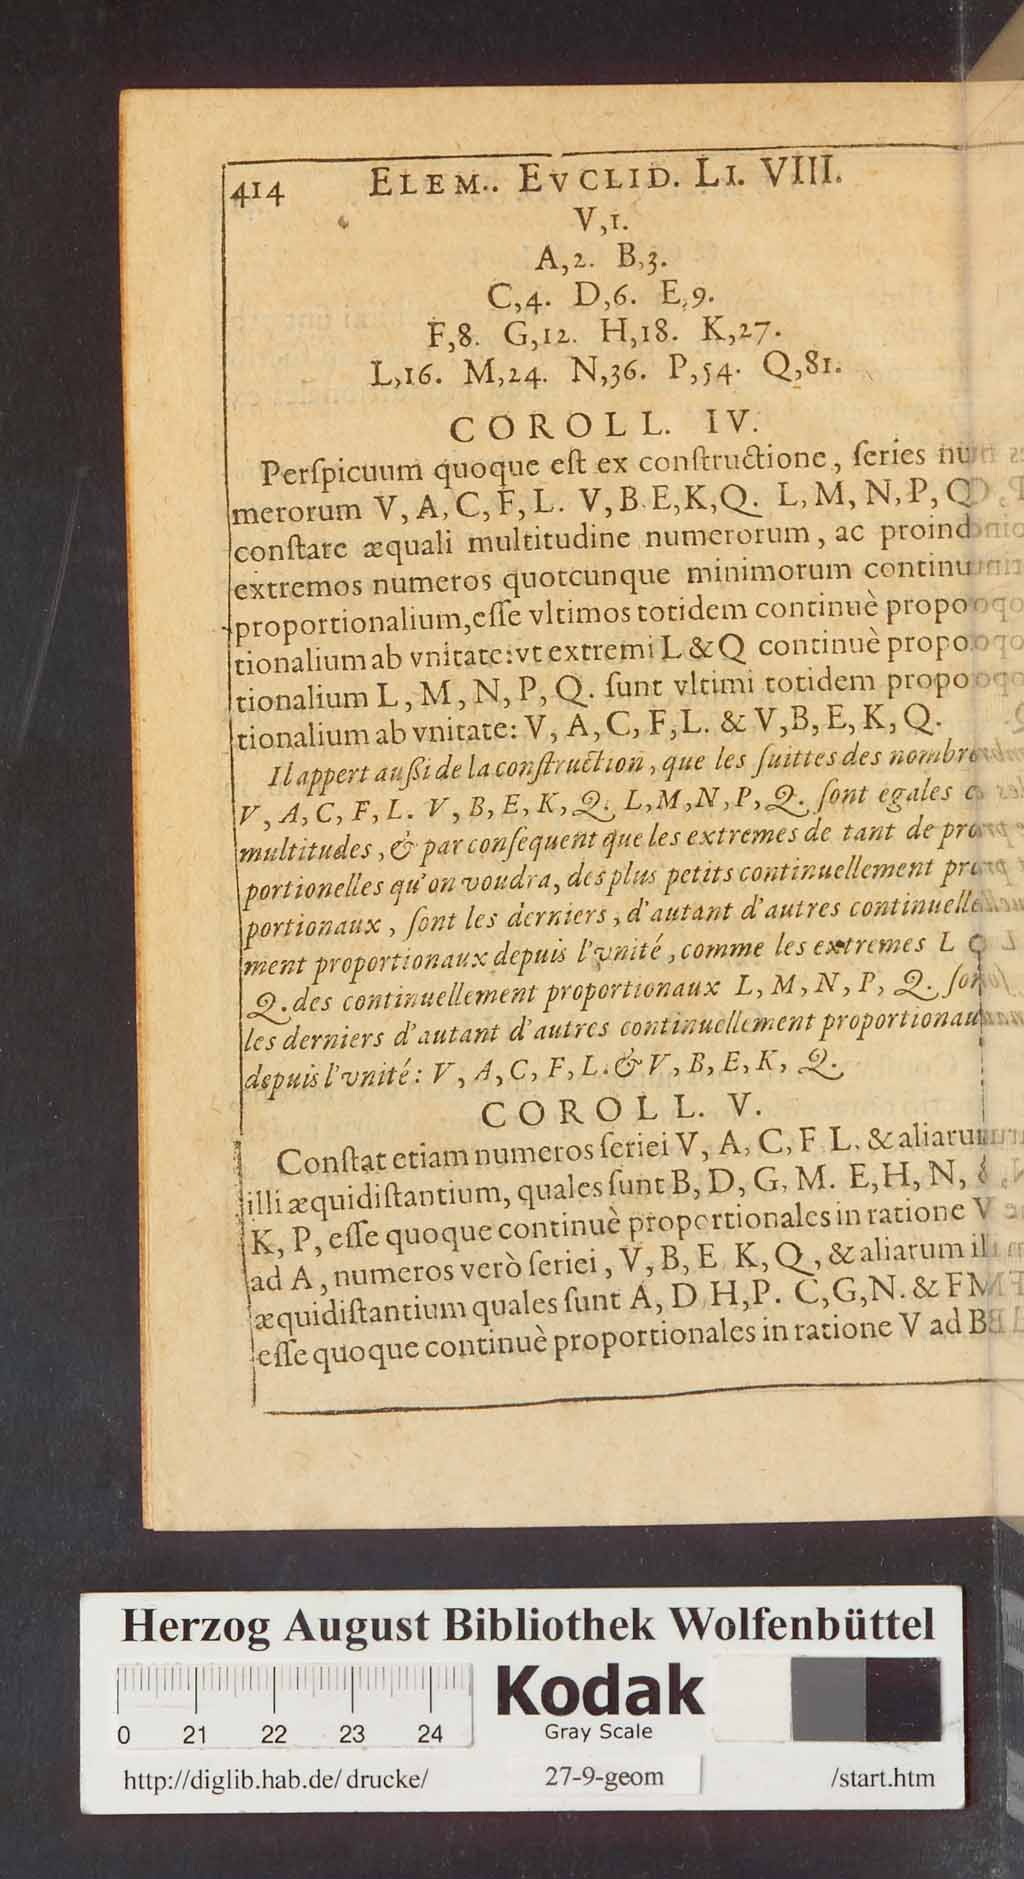 414 ELEM.. EVCLID. LI. VIII.
V,1.
A,2. B,3.
C,4. D,6. E,9.
F,8. G,12. H,18. K,27.
L,16. M,24. N,36. P,54. Q,81.
COROLL. IV.
Perſpicuum quoque eſt ex conſtructione, ſeries nu
merorum V, A, C, F, L. V, B. E, K, Q. L, M, N, P, Q
conſtare æquali multitudine numerorum, ac proind
extremos numeros quotcunque minimorum continu
proportionalium, eſſe vltimos totidem continuè propo
tionalium ab vnitate: vt extremi L & Q continuè propo
tionalium L, M, N, P, Q. ſunt vltimi totidem propo
tionalium ab vnitate: V, A, C, F, L. & V, B, E, K, Q.
Il appert außi de la conſtruction, que les ſuittes des nombre
V, A, C, F, L. V, B, E, K, Q. L, M, N, P, Q. ſont egales
multitudes, & par conſequent que les extremes de tant de pro
portionelles qu'on voudra, des plus petits continuellement pro
portionaux, ſont les derniers, d'autant d'autres continuelle
ment proportionaux depuis l'vnité, comme les extremes L
Q. des continuellement proportionaux L, M, N, P, Q. ſon
les derniers d'autant d'autres continuellement proportionau
depuis l'vnité: V, A, C, F, L. & V, B, E, K, Q.
COROLL. V.
Conſtat etiam numeros ſeriei V, A, C, F L. & aliarum
illi æquidiſtantium, quales ſunt B, D, G, M. E, H, N, &
K, P, eſſe quoque continuè proportionales in ratione V
ad A, numeros verò ſeriei, V, B, E K, Q, & aliarum illi
æquidiſtantium quales ſunt A, D H, P. C, G, N. & F M
eſſe quoque continuè proportionales in ratione V ad B
Herzog August Bibliothek Wolfenbüttel
Kodak
Gray Scale
0 21 22 23 24
http://diglib.hab.de/drucke/ 27-9-geom /start.htm